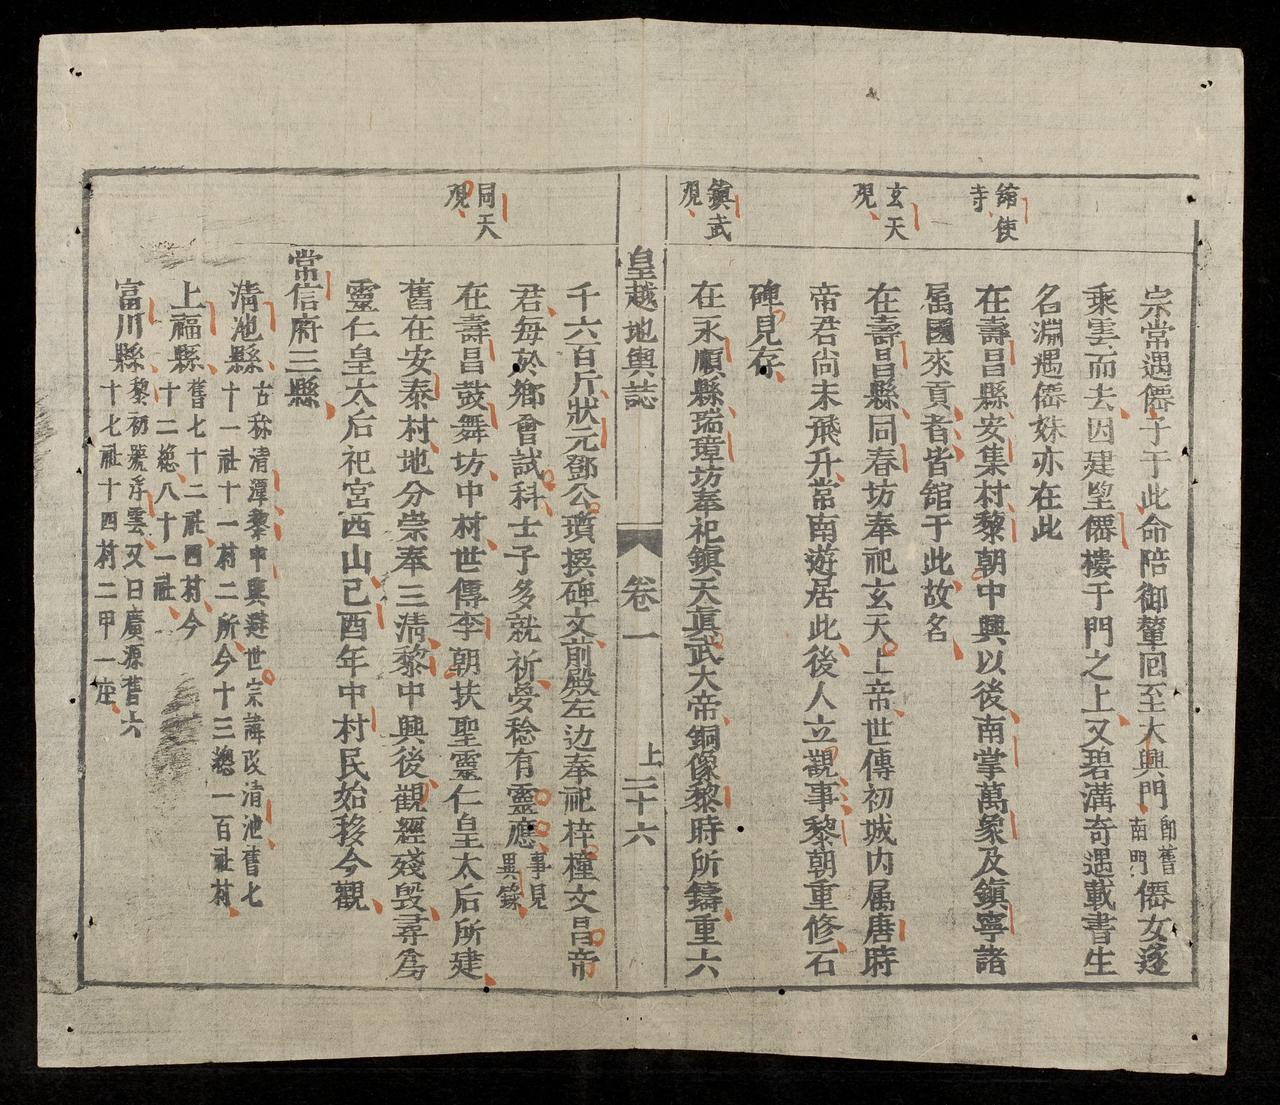 宗常遇僊子于此命陪御輦囘至大興門即舊南門僊女遂
乘雲而去因建墬僊樓于門之上又碧溝奇遇載書生
名淵遇僊妹亦在此
舘使寺
在壽昌縣安集村黎朝中興以後南掌萬象及鎮寧諸
属國來貢者皆舘于此故名
玄天观
在壽昌縣同春坊奉祀玄天上帝世傳初城内属唐時
帝君尚未飛升常南遊居此後人立觀事黎朝重修石
碑見存
鎮武观
在永順縣瑞璋坊奉祀鎮天眞武大帝銅像黎時所鑄重六
皇越地輿誌
卷一
上
二十六
千六百斤狀元鄧公瓆撰碑文前殿左边奉祀梓橦文昌帝
君每於鄉會試科士子多就祈夢稔有靈應事見異錄
同天观
在壽昌鼓舞坊中村世傳李朝扶聖靈仁皇太后所建
舊在安泰村地分崇奉三清黎中興後觀經殘毁尋為
靈仁皇太后祀宮西山己酉年中村民始移今觀
常信府三縣
清池縣古称清潭黎中興避世宗諱改清池舊七
十一社十一村二所今十三總一百社村
上福縣舊七十二社四村今
十二總八十一社
富川縣黎初號浮雲又曰廣源舊六
十七社十四村二甲一庄